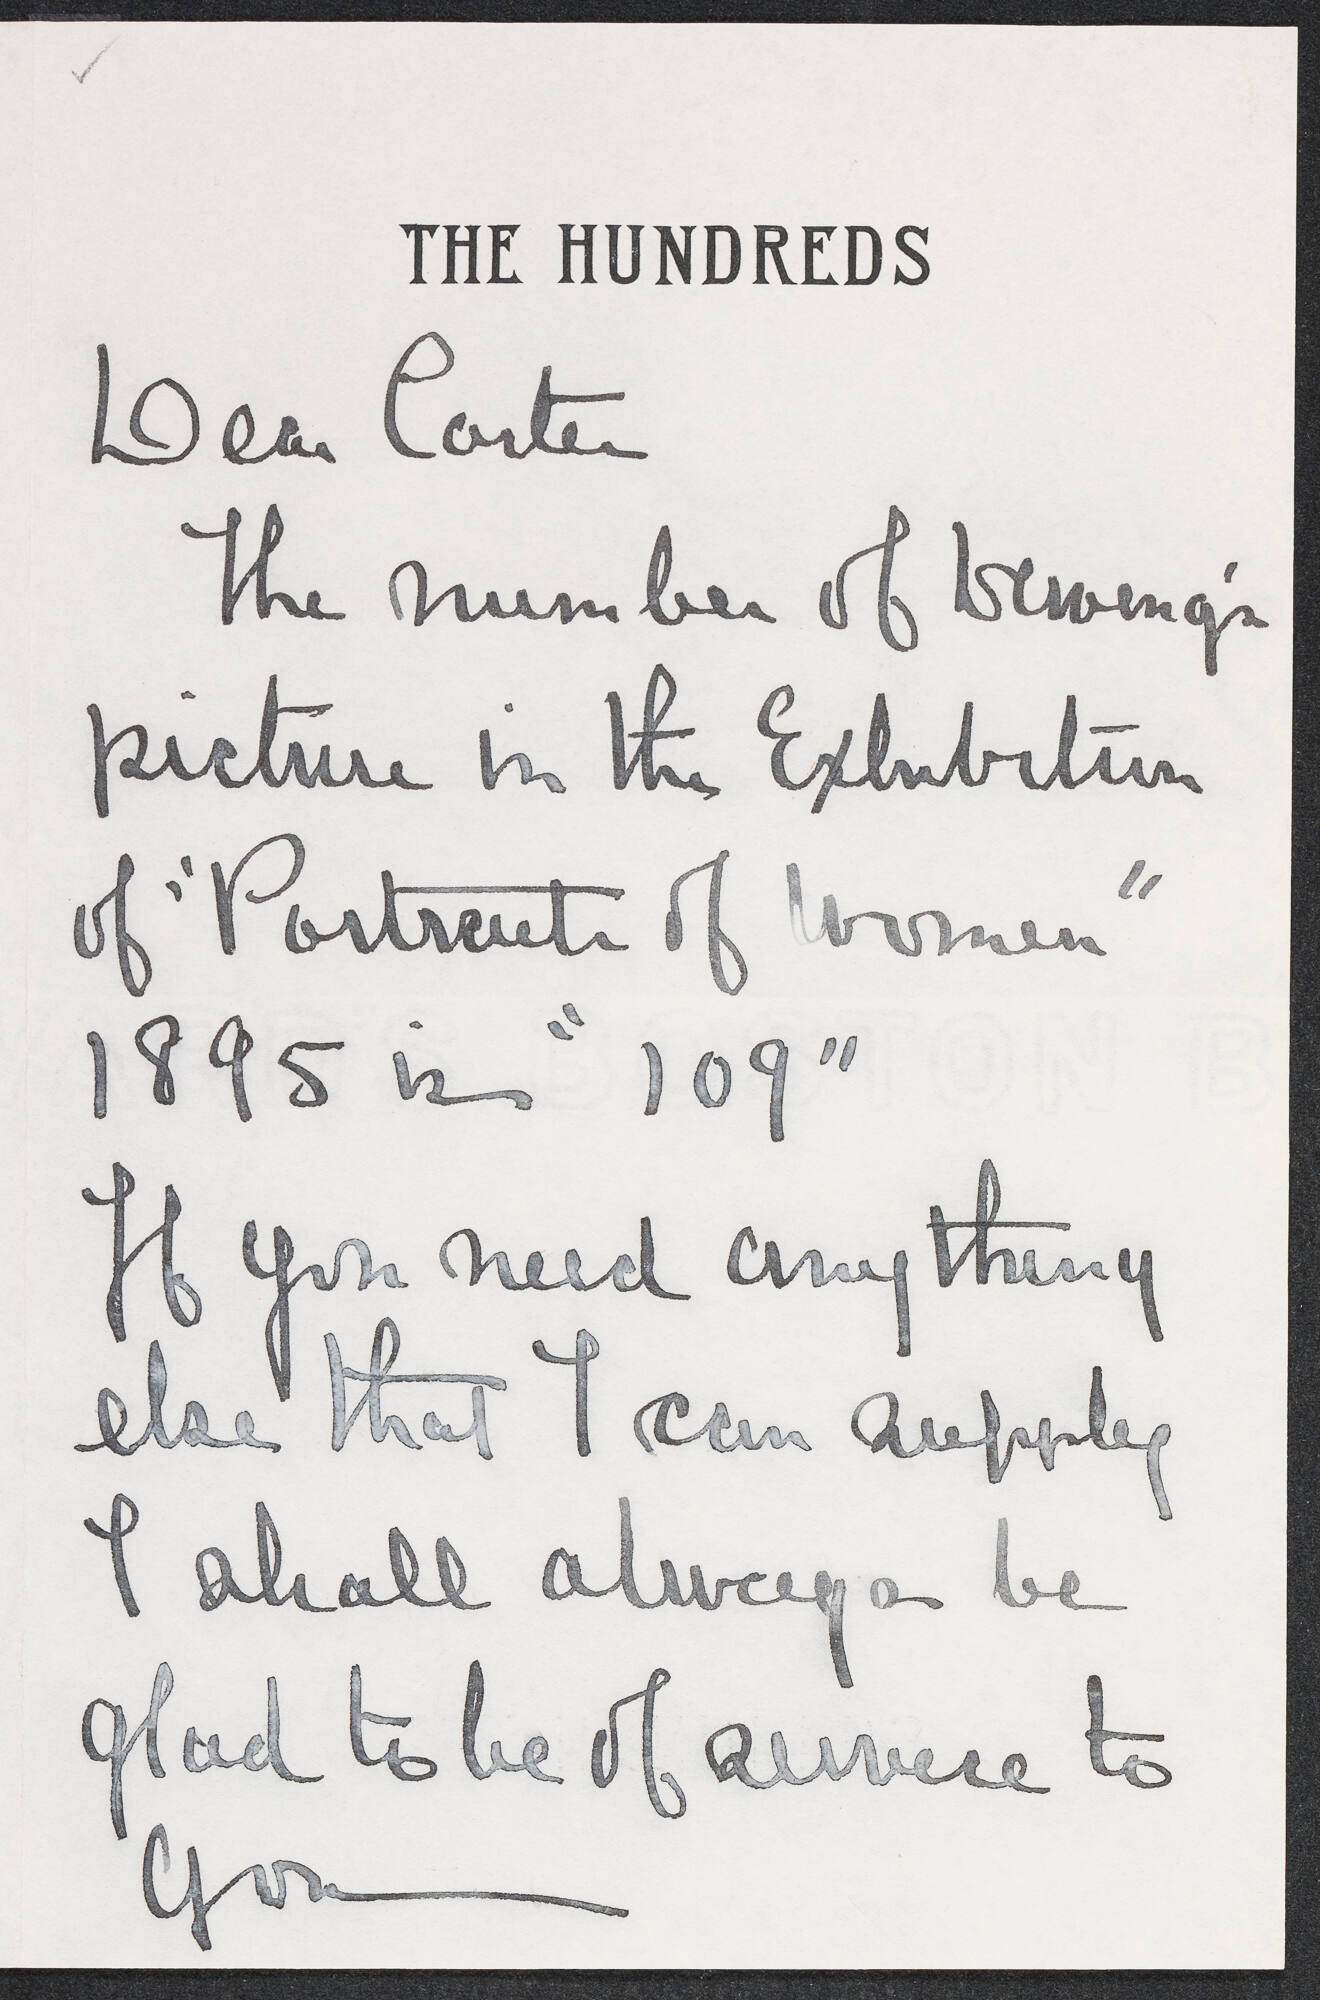 THE HUNDREDS
Dear Carter
The number of Dewing's
picture in the Exhibition
of "Portraits of Women"
1895 is "109"
If you need anything
else that I can supply
I shall always be
glad to be of service to
you